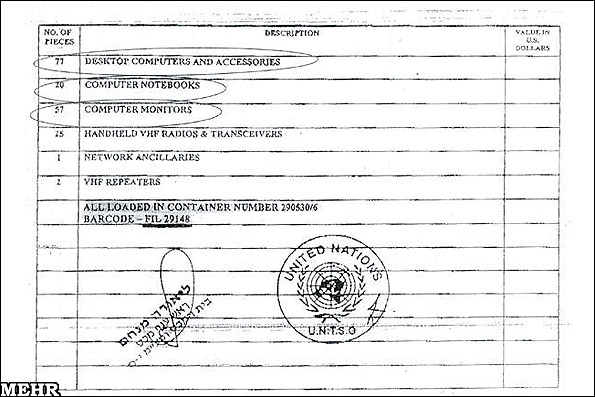 NO. OF PIECES
DESCRIPTION
VALUE IN U.S. DOLLARS
77 DESKTOP COMPUTERS AND ACCESSORIES
20 COMPUTER NOTEBOOKS
57 COMPUTER MONITORS
15 HANDHELD VHF RADIOS & TRANSCEIVERS
1 NETWORK ANCILLARIES
2 VHF REPEATERS
ALL LOADED IN CONTAINER NUMBER 290530/6
BARCODE – FIL 29148
UNITED NATIONS
U.N.T.S.O
ליאורה מנחם
ראש ענף מכס
בית המכס
MEHR